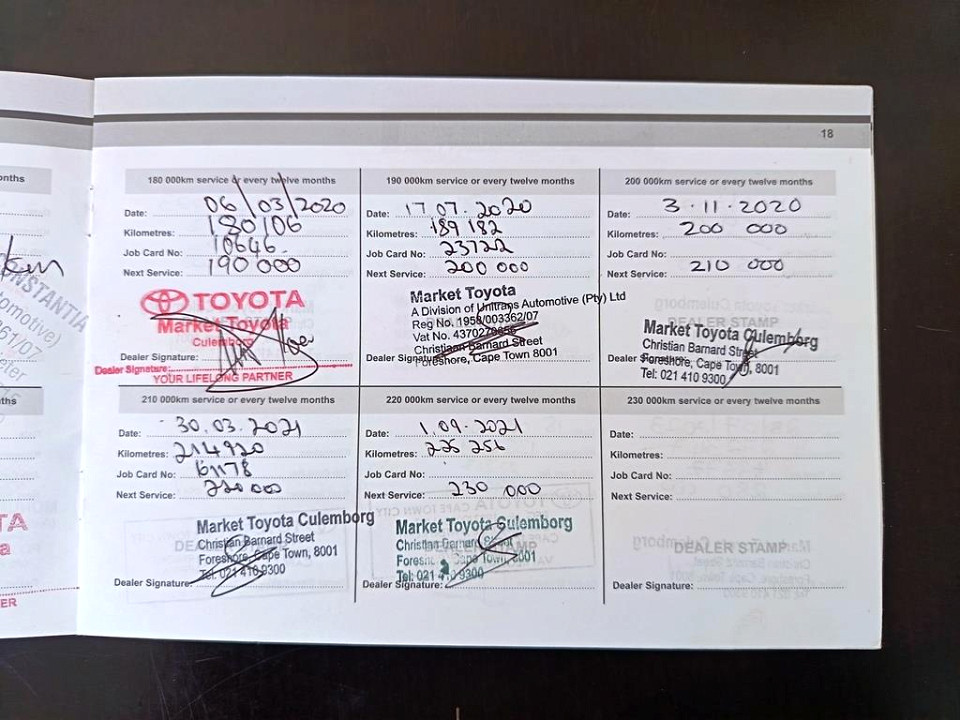 18
onths
180 000km service or every twelve months
Date: 06/03/2020
Kilometres: 180106
Job Card No: 10646
Next Service: 190 000
TOYOTA
Market Toyota
Culemborg
Dealer Signature:
Dealer Signature:
YOUR LIFELONG PARTNER
190 000km service or every twelve months
Date: 17.07.2020
Kilometres: 189 182
Job Card No: 23722
Next Service: 200 000
Market Toyota
A Division of Unitrans Automotive (Pty) Ltd
Reg No. 1958/003362/07
Vat No.
Christiaan Barnard Street
Foreshore, Cape Town 8001
Dealer Signature:
200 000km service or every twelve months
Date: 3.11.2020
Kilometres: 200 000
Job Card No:
Next Service: 210 000
DEALER STAMP
Market Toyota Culemborg
Christian Barnard Street
Foreshore, Cape Town, 8001
Tel: 021 410 9300
Dealer
CONSTANTIA
omotive)
61/07
eter
ths
TA
a
ER
210 000km service or every twelve months
Date: 30.03.2021
Kilometres: 214920
Job Card No:
Next Service: 220000
Market Toyota Culemborg
Christian Barnard Street
Foreshore, Cape Town, 8001
Tel: 021 410 9300
Dealer Signature:
220 000km service or every twelve months
Date: 1.09.2021
Kilometres: 225 256
Job Card No:
Next Service: 230 000
Market Toyota Culemborg
Christian Barnard
Cape Town, 8001
Tel: 021 410 9300
Dealer Signature:
230 000km service or every twelve months
Date:
Kilometres:
Job Card No:
Next Service:
DEALER STAMP
Dealer Signature: